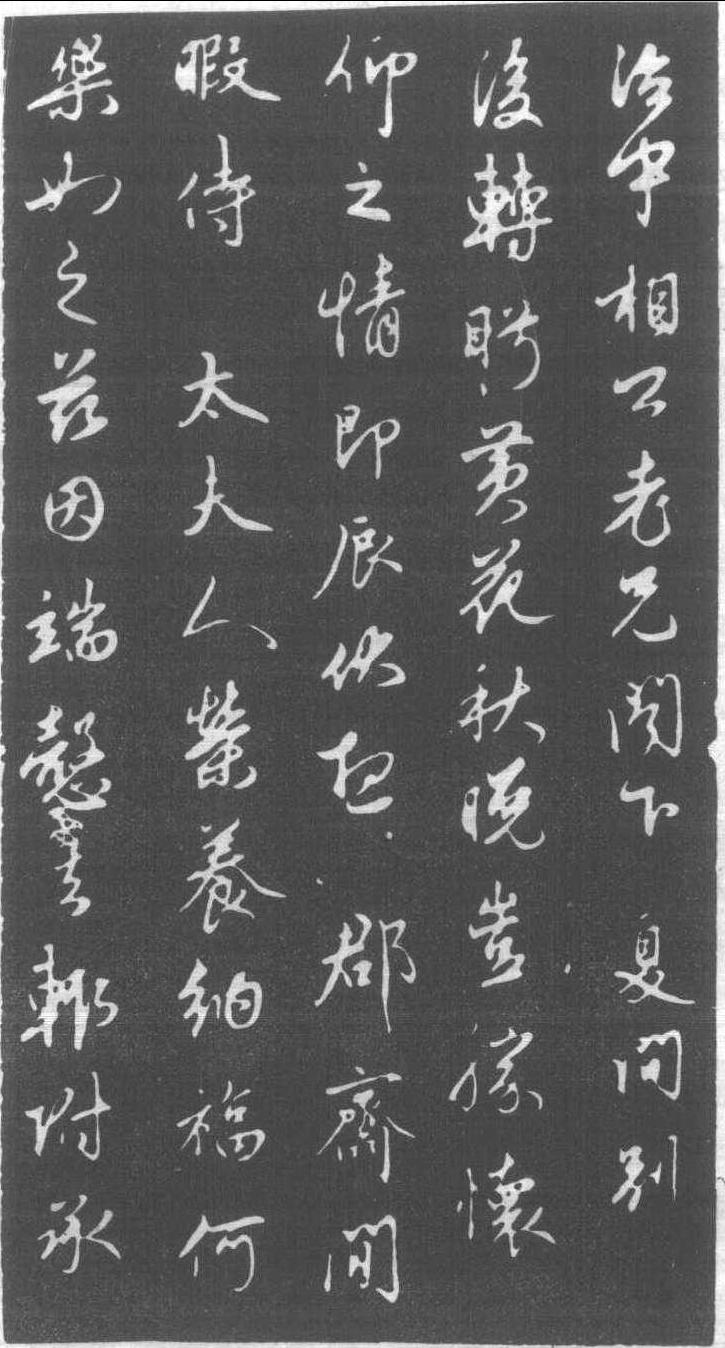 治中相公老兄閤下 夏間別
後轉眄黃花秋晚豈勝懷
仰之情即辰伏想 郡齋閒
暇侍 太夫人榮養納福何
樂如之茲因端慤書輒附承